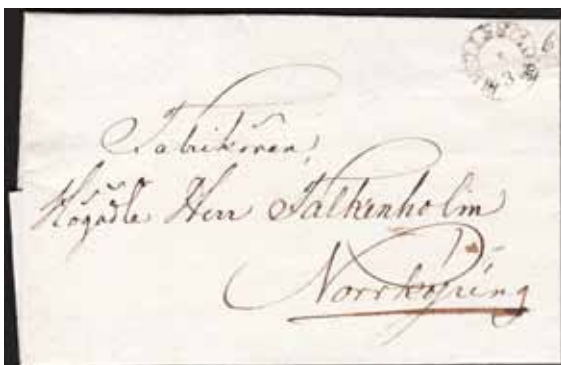 Fabrikören,
Högädle Herr Falkenholm
Norrköping